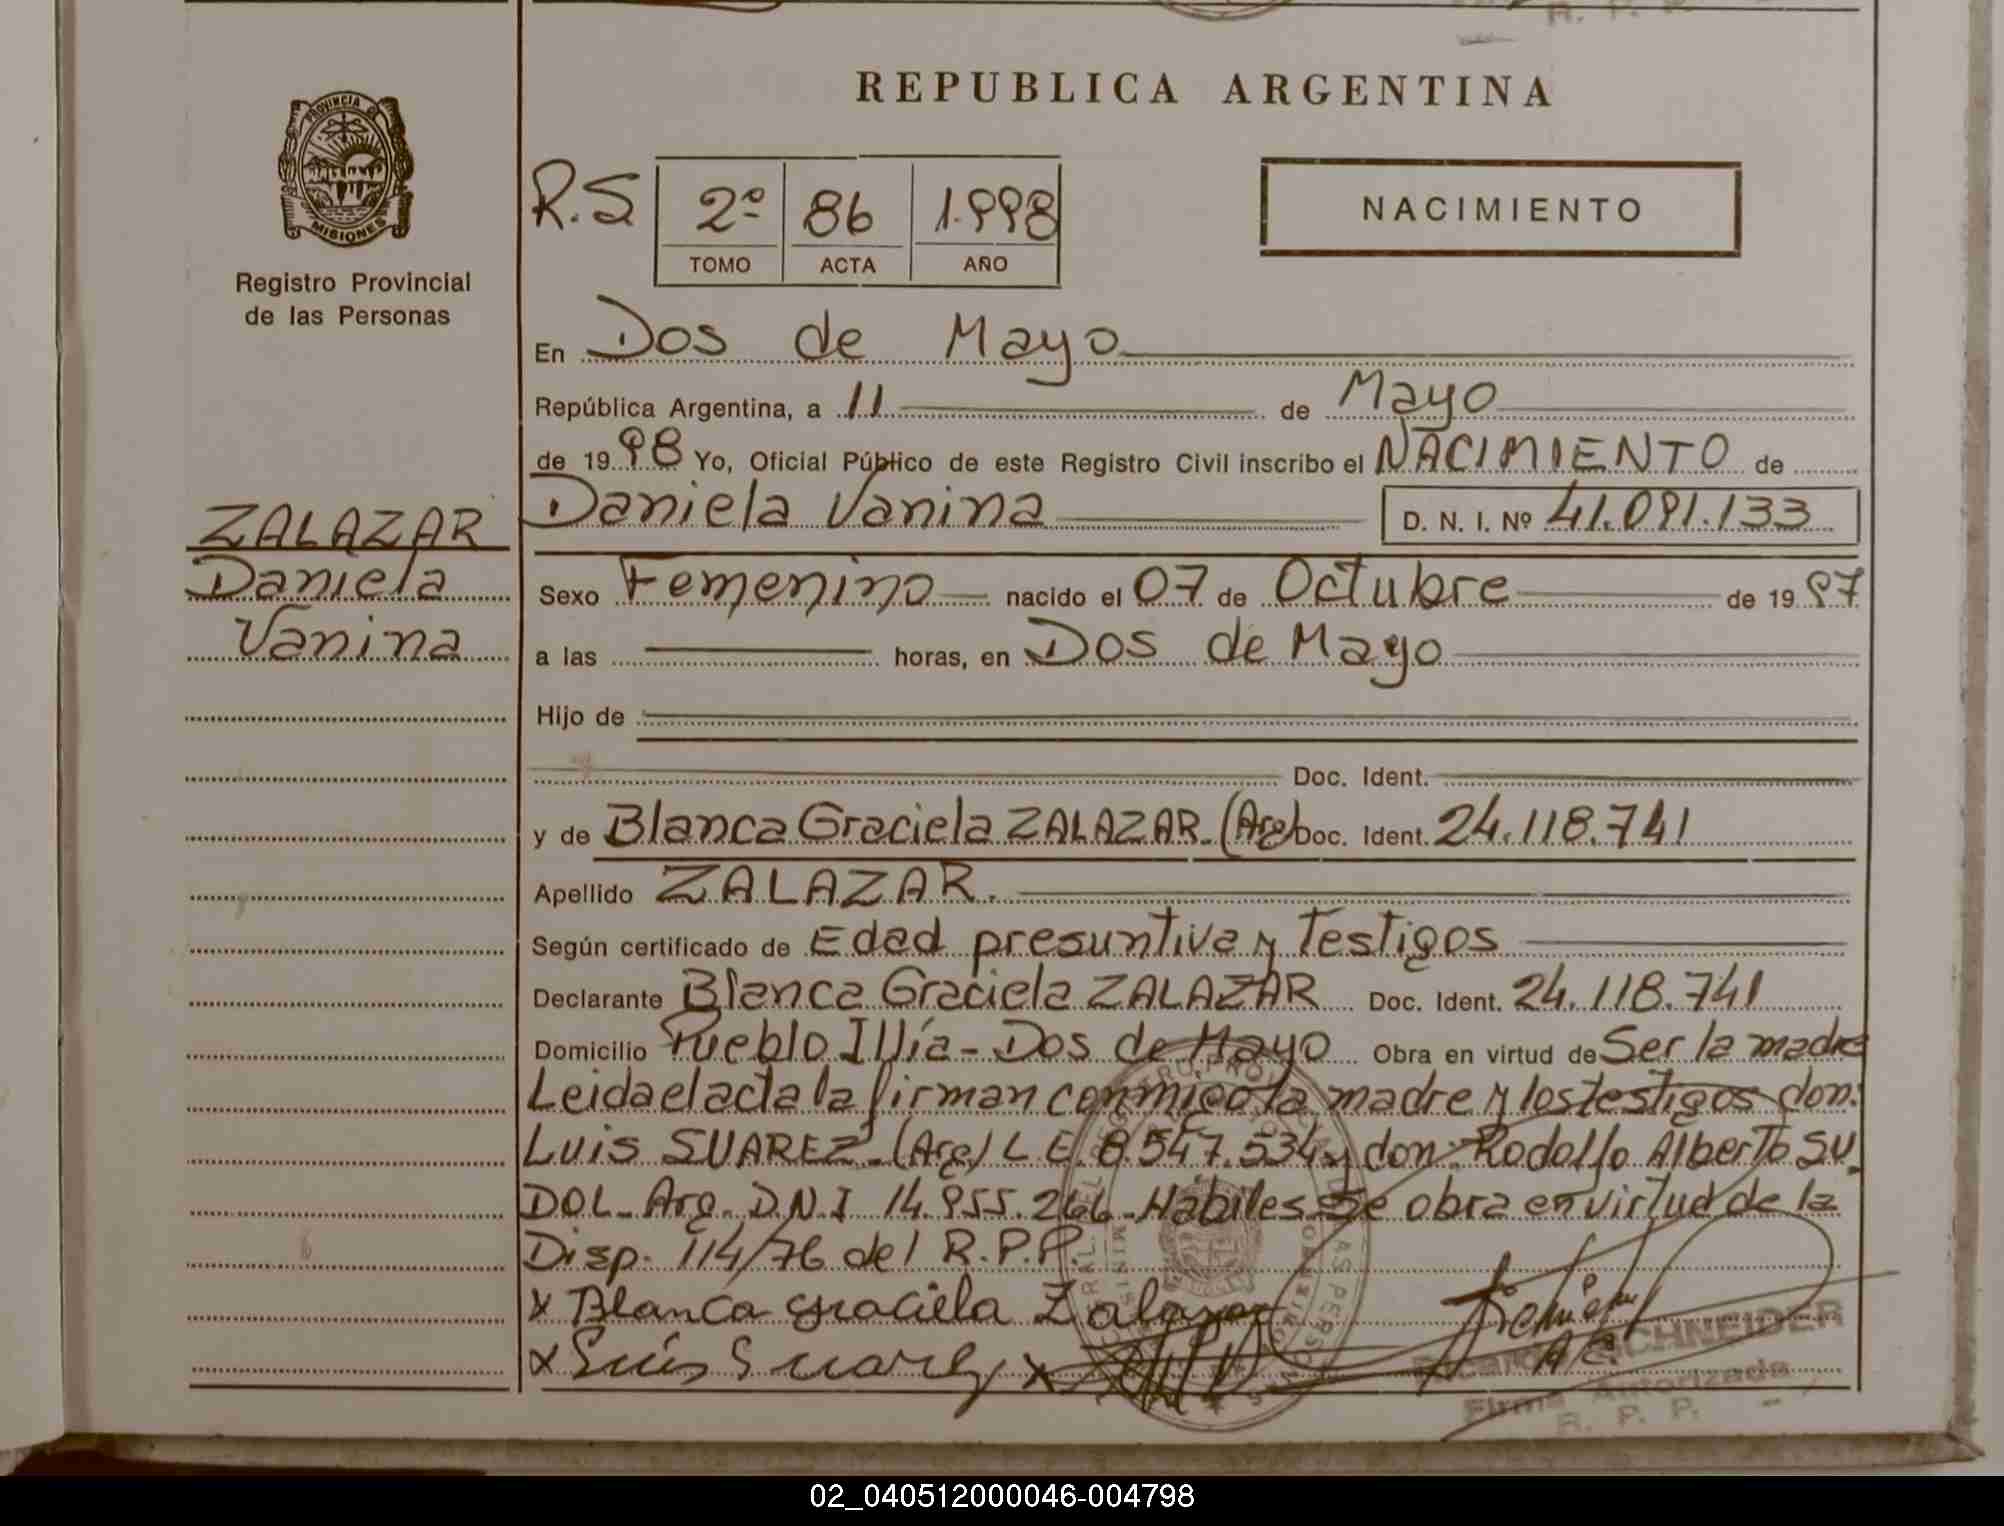 REPUBLICA ARGENTINA
PROVINCIA DE
MISIONES
Registro Provincial
de las Personas
R.S 2º 86 1.998
TOMO ACTA AÑO
NACIMIENTO
En Dos de Mayo
República Argentina, a 11 de Mayo
de 1998 Yo, Oficial Público de este Registro Civil inscribo el NACIMIENTO de
ZALAZAR
Daniela
Vanina
Daniela Vanina D. N. I. Nº 41.091.133
Sexo Femenino nacido el 07 de Octubre de 1997
a las horas, en Dos de Mayo
Hijo de
Doc. Ident.
y de Blanca Graciela ZALAZAR. (Arg) Doc. Ident. 24.118.741
Apellido ZALAZAR.
Según certificado de Edad presuntiva y Testigos
Declarante Blanca Graciela ZALAZAR Doc. Ident. 24.118.741
Domicilio Pueblo Illía - Dos de Mayo Obra en virtud de Ser la madre
Leida el acta la firman conmigo la madre y los testigos don:
Luis SUAREZ (Arg) L E. 8.547.534 y don: Rodolfo Alberto SU
DOL - Arg. D.N.I 14.955.266 - Hábiles Se obra en virtud de la
Disp. 114/76 del R.P.P.
x Blanca Graciela Zalazar
x Luis Suarez x
SCHNEIDER
Firma Autorizada
R. P. P.
02_040512000046-004798